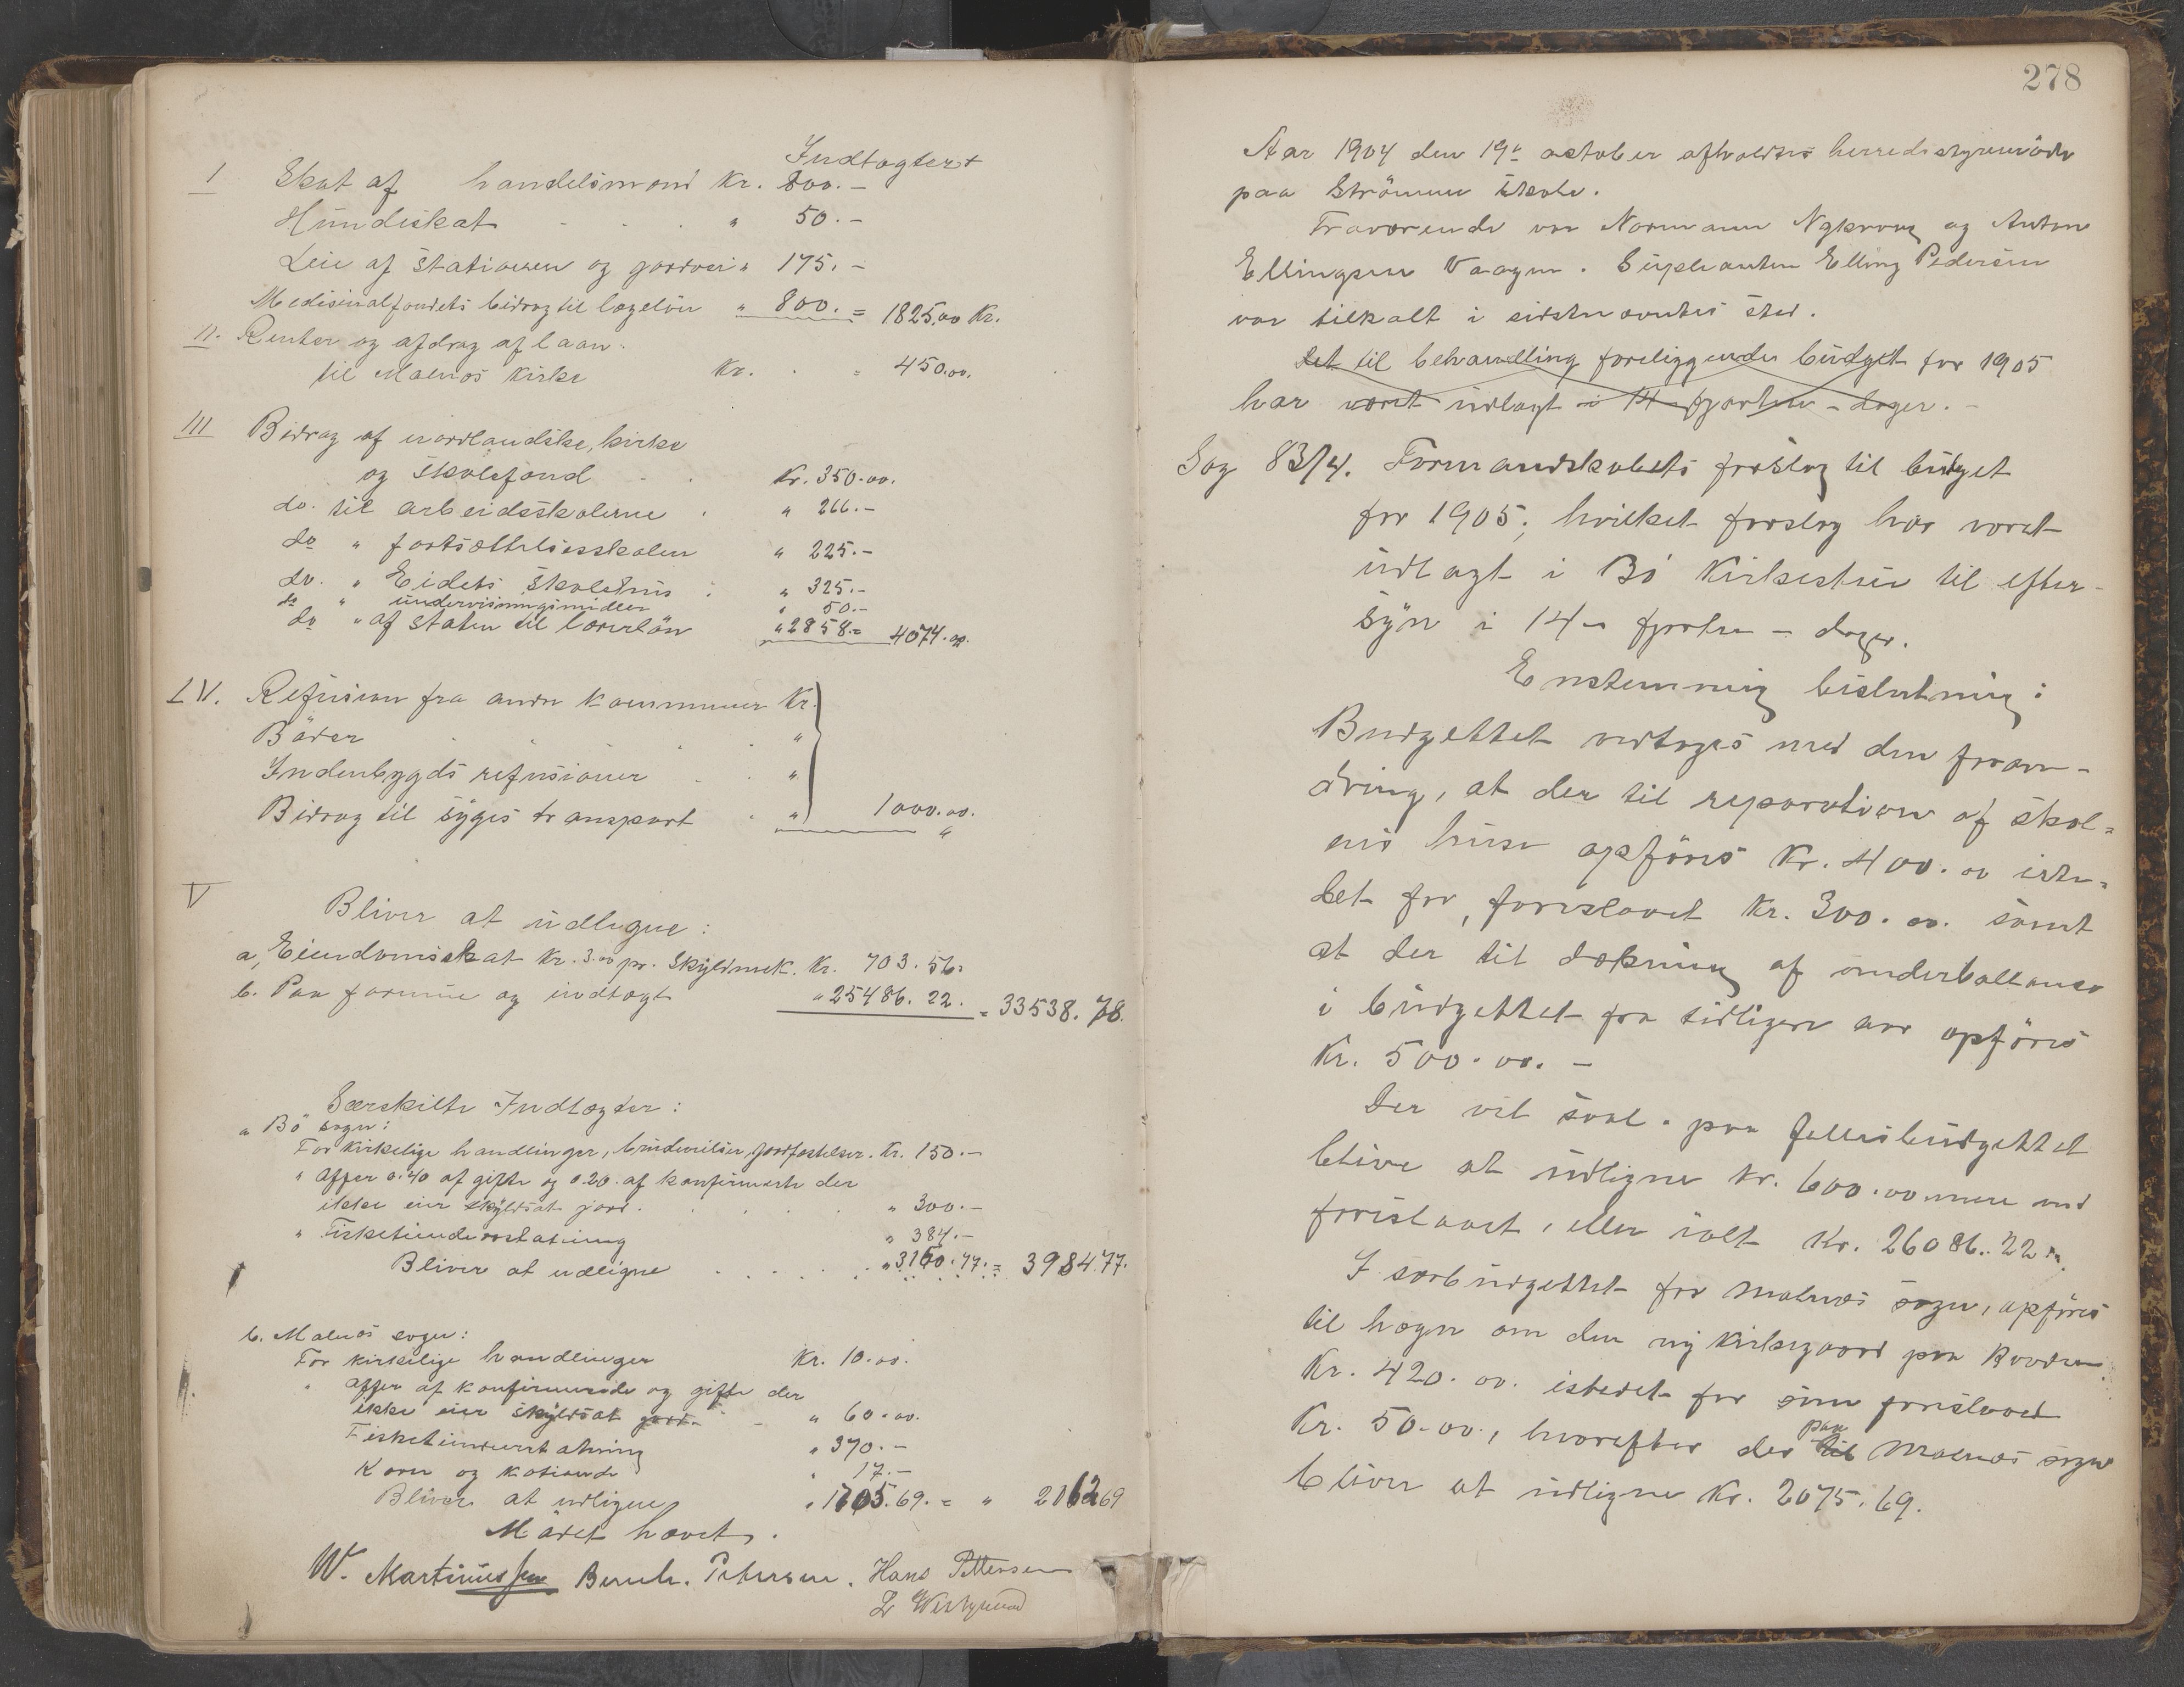 Indtægter
I Skat af handelsmænd Kr. 800.-
Hundeskat " 50.-
Leie af stationen og jordvei " 175.-
Medisinalfondets bidrag til lægelön " 800.- = 1825,00 Kr.
II. Renter og afdrag af laan.
til Malnæs Kirke Kr. = 450.00.
III Bidrag af nordlandske, kirke
og skolefond Kr. 350.00.
do. til arbeidsskolerne " 266.-
do " fortsættelsesskolen " 225.-
do. " Eidets skolehus " 325.-
do " undervisningsmidler " 50.-
do " af staten til lærerlön " 2858.= 4074.00.
IV. Refusion fra andre Kommuner Kr.
Böder "
Indenbygds refusioner "
Bidrag til syges transport " 1000.00.
V
Bliver at udligne:
a, Eiendomsskat Kr. 3.00 pr. Skyldmrk. Kr. 703.56.
b. Paa formue og indtægt " 25486.22. = 33538.78.
Særskilte Indtægter:
a Bö sogn:
For Kirkelige handlinger, brudevielser, jordfæstelser. Kr. 150.-
" offer 0.40 af gifte og 0.20. af konfirmerte der
ikke eier skyldsat jord. " 300.-
" Fisketiendeerstatning " 384.-
Bliver at udligne " 3150.77. = 3984.77.
b. Malnæs sogn:
For kirkelige handlinger Kr. 10.00.
" offer af Konfirmerede og gifte der
ikke eier skyldsat jord. " 60.00.
Fisketiendeerstatning " 370.-
Korn og Kotiende " 17.-
Bliver at udligne " 1705.69. = " 2162 69
Mödet hævet.
W. Martinussen Bernh. Petersen. Hans Pettersen
278
Aar 1904 den 19de october afholdtes herredsstyremöde
paa Strömmen skole.
Fraværende var Normann Nykvaag og Anton
Ellingsen Vaagen. Suplianten Elling Pedersen
var tilkalt i sidstnævntes sted.
Det til behandling foreliggende budget for 1905
har været udlagt i 14 fjorten - dager.-
Sag 83/4. Formandskabets forslag til budget
for 1905; hvilket forslag har været
udlagt i Bö Kirkestue til efter-
syn i 14 - fjorten - dager.
Enstemmig beslutning:
Budgettet vedtages med den foran-
dring, at der til reparation af skol=
ens huse opföres Kr. 400.00 iste=
det for, foreslaaet Kr. 300.00. samt
at der til dækning af underballance
i budgettet fra tidligere aar opföres
Kr. 500.00.-
Der vil saal. paa fellesbudgettet
blive at udligne kr. 600.00 mere end
foreslaaet, eller ialt Kr. 26086.22.
I særbudgettet for Malnæs sogn, opföres
til hægn om den ny kirkegaard paa
Kr. 420.00. istedet for som foreslaaet
Kr. 50.00, hvorefter der til paa Malnæs sogn
bliver at udligne Kr. 2075.69.